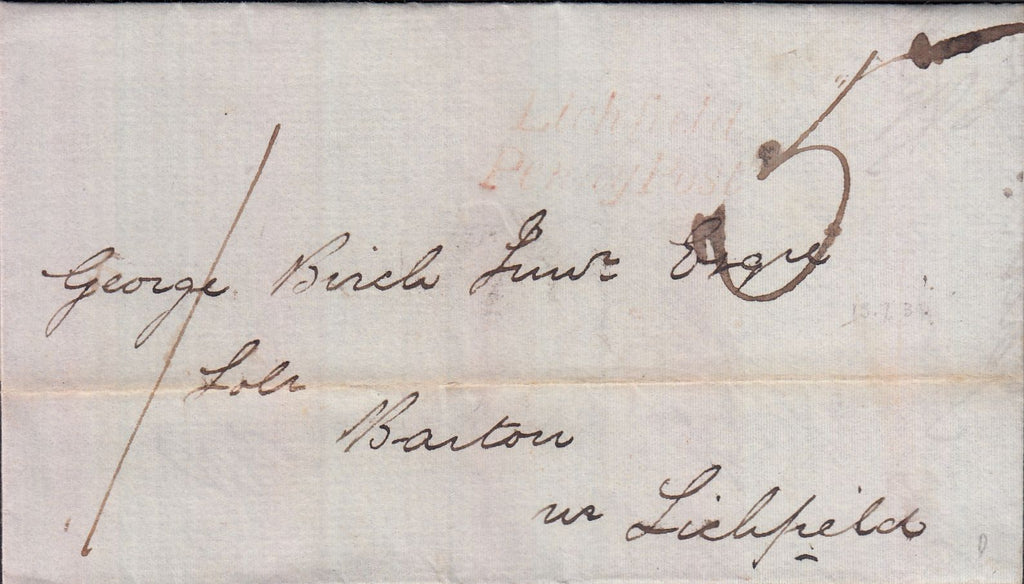 Lichfield
Penny Post
5
George Birch Junr Esqre
Solr
Barton
nr Lichfield